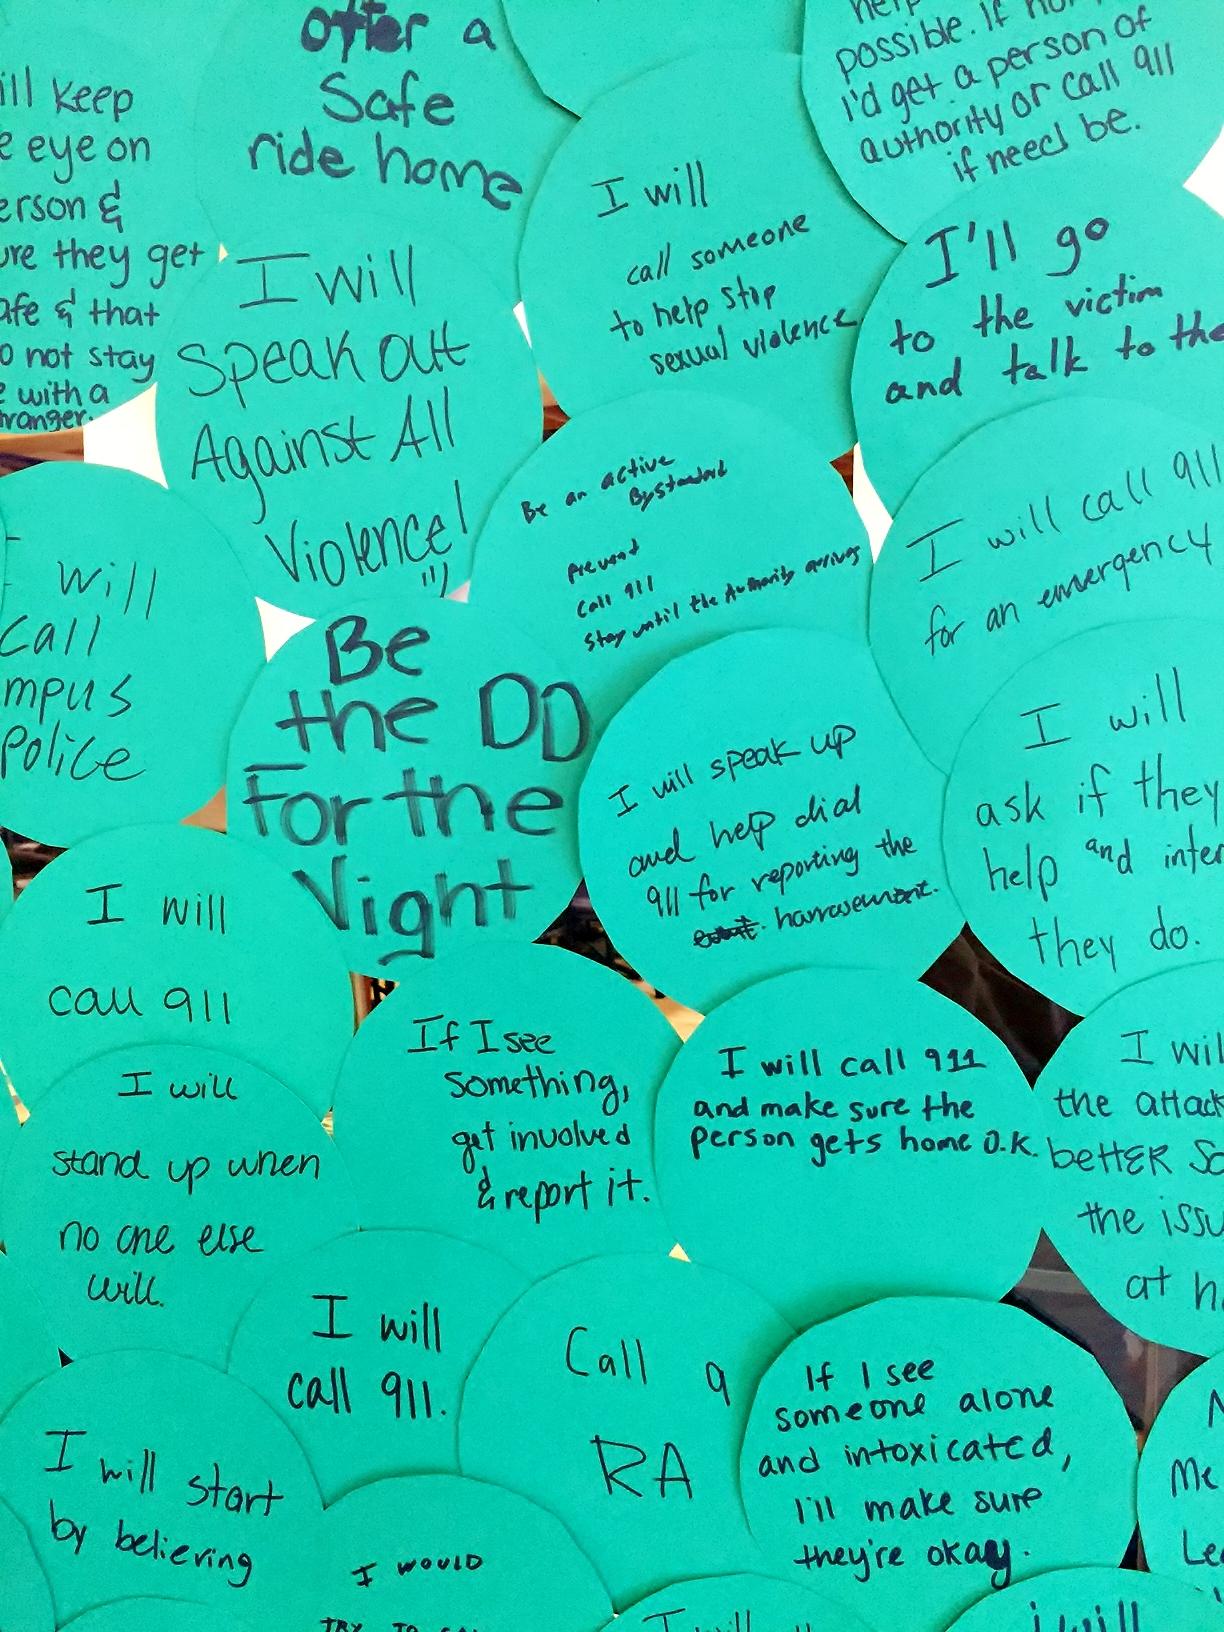 offer a
Safe
ride home
help
possible. If
I'd get a person of
authority or call 911
if need be.
ill keep
eye on
erson &
ure they get
afe & that
o not stay
with a
tranger.
I will
Speak out
Against All
Violence!
I will
call someone
to help stop
sexual violence
I'll go
to the victim
and talk to the
Be an active
Bystandard
Prevent
Call 911
Stay until the Authority arrives
I will call 911
for an emergency
I will
Call
mpus
Police
Be
the DD
For the
Night
I will speak up
and help dial
911 for reporting the
harrasement.
I will
ask if they
help and inter
they do.
I will
call 911
If I see
Something,
get involved
& report it.
I will call 911
and make sure the
person gets home O.K.
I wil
the attack
bettER So
the issu
at h
I will
stand up when
no one else
will.
I will
call 911.
Call a
RA
If I see
someone alone
and intoxicated,
I'll make sure
they're okay.
I will start
by believing
Me
Le
I WOULD
TRY TO
I will
i will